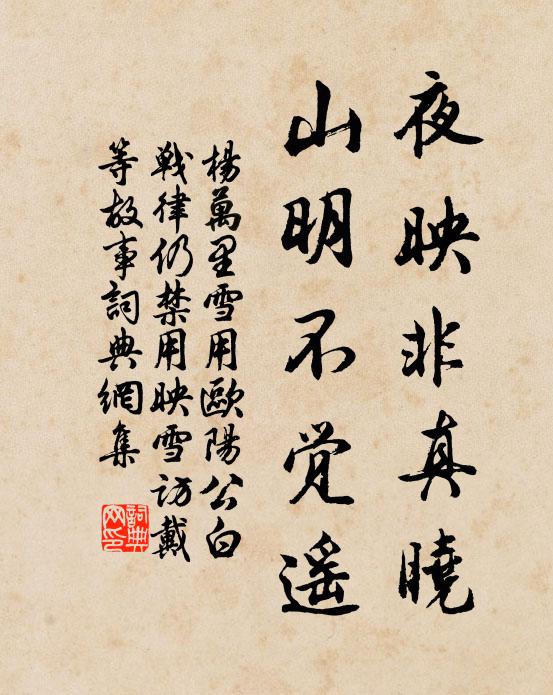 夜映非真曉
山明不觉遥
楊萬里雪用歐陽公白
戰律仍禁用映雪訪戴
等故事詞典網集
詞典网印